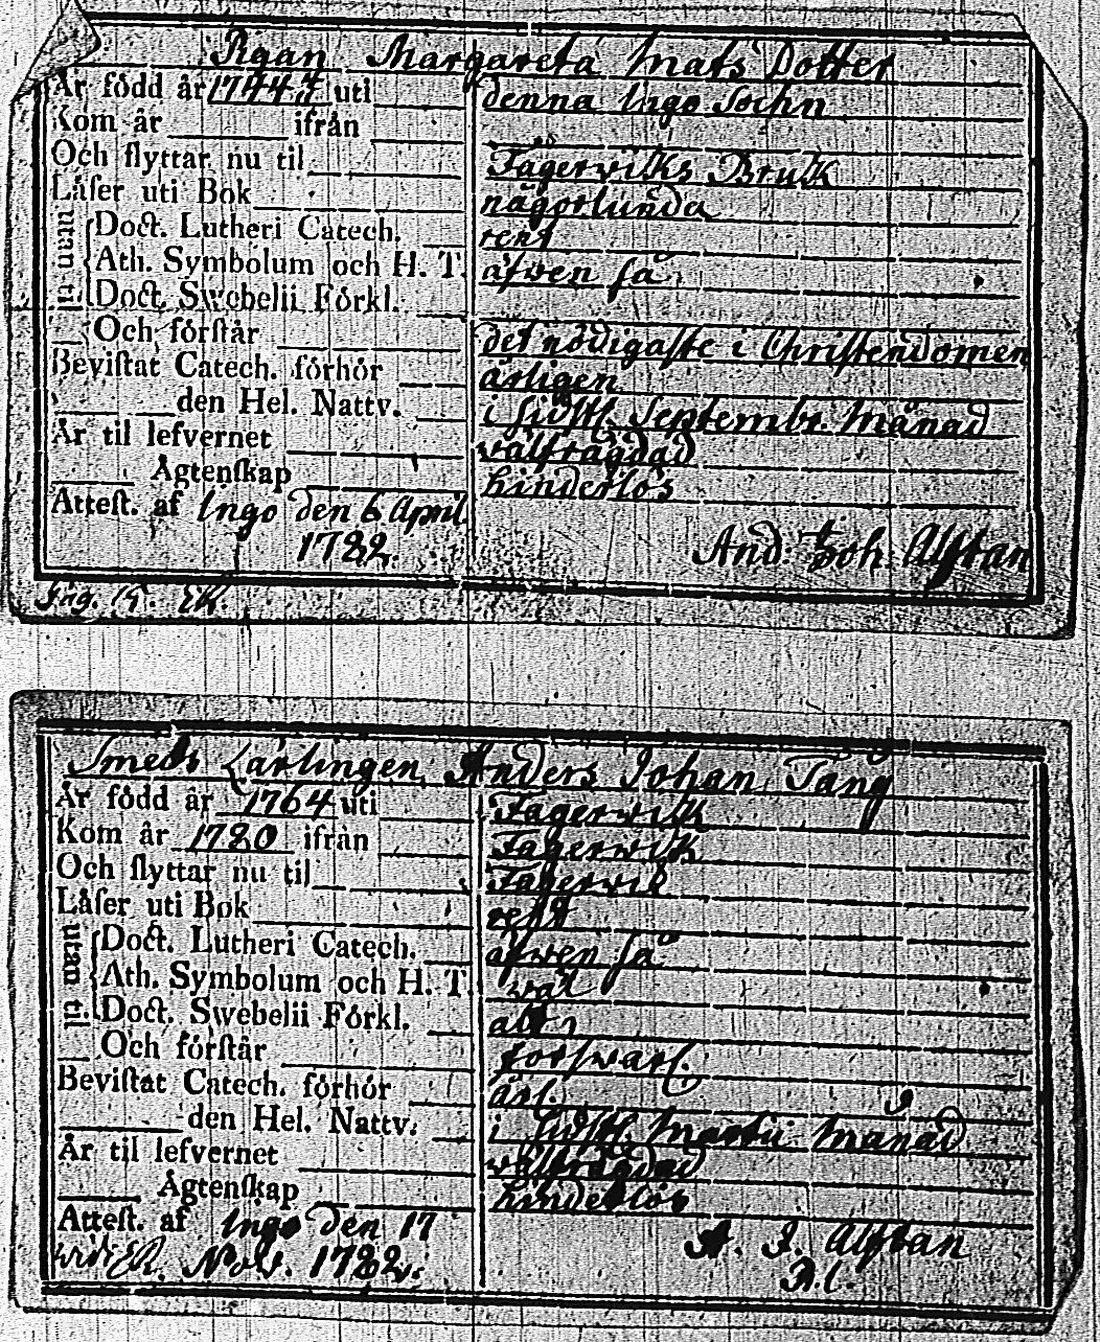 Pigan Margareta Mats Dotter
Är född år 1744 uti denna Ingo Sochn
Kom år ifrån
Och flyttar nu til Fagerwiks Bruk
Låſer uti Bok någorlunda
utan til Doct. Lutheri Catech. rent
Ath. Symbolum och H. T. äfwen ſå
Doct. Swebelii Förkl.
Och förſtår det nödigaſte i Chriſtendomen
Beviſtat Catech. förhör årligen
den Hel. Nattv. i ſidſtl. Septembr. Månad
År til lefvernet wälfrägdad
Ägtenſkap hinderlös
Atteſt. af Ingo den 6 April.
1782. And. Joh. Alftan
Är född år 1764 uti Fagerwik
Smeds Lärlingen Anders Johan Tång
Kom år 1780 ifrån Fagerwik
Och flyttar nu til Fagerwik
Låſer uti Bok rent
utan til Doct. Lutheri Catech. äfwen ſå
Ath. Symbolum och H. T. wäl
Doct. Swebelii Förkl. alt
Och förſtår forſwarl.
Beviſtat Catech. förhör årl.
den Hel. Nattv. i ſidſtl. Martii Månad
År til lefvernet wälfrägdad
Ägtenſkap hinderlös
Atteſt. af Ingo den 17 A. J. Alftan
Nov. 1782.